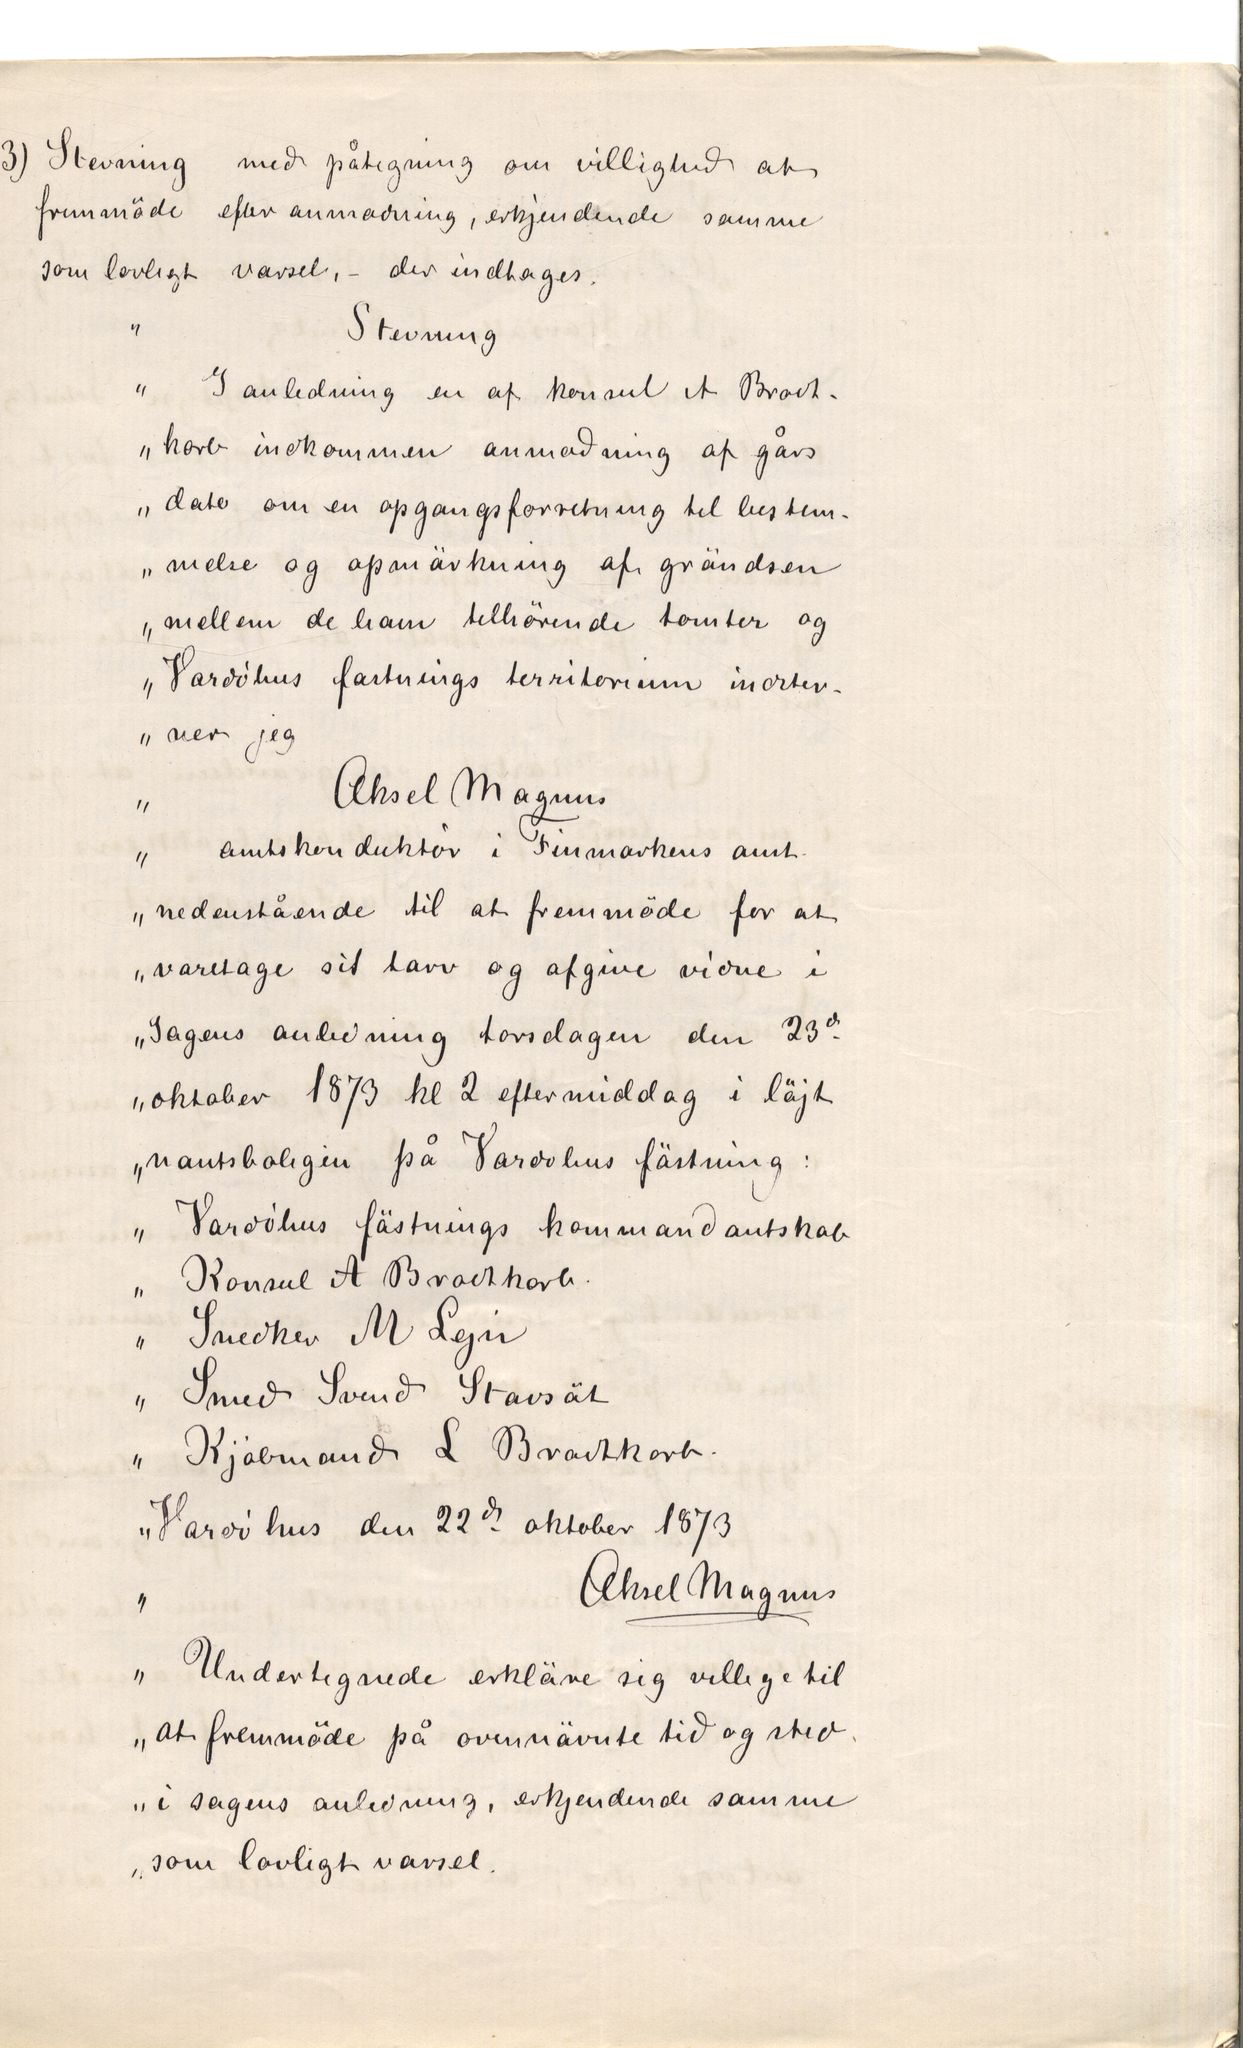 3) Stevning med påtegning om villighed at
fremmöde efter anmodning, erkjendende samme
som lovligt varsel, - der indtages.
" Stevning
" I anledning en af konsul A Brodt-
" korb indkommen anmodning af gårs
" dato om en opgangsforretning til bestem-
" melse og opmärkning af grändsen
" mellem de ham tilhörende tomter og
" Vardöhus fästnings territorium indster-
" ner jeg
" Aksel Magnus
" amtskonduktör i Finmarkens amt
" nedenstående til at fremmöde for at
" varetage sit tarv og afgive vidne i
" Sagens anledning torsdagen den 23d
" oktober 1873 kl 2 eftermiddag i löjt
" nantsboligen på Vardöhus fästning:
" Vardöhus fästnings kommandantskab
" Konsul A Brodtkorb.
" Snedker M Lejn
" Smed Svend Stavsät
" Kjöbmand L Brodtkorb.
" Vardöhus den 22d oktober 1873
" Aksel Magnus
" Undertegnede erkläre sig villige til
" at fremmöde på ovennävnte tid og sted
" i sagens anledning, erkjendende samme
" som lovligt varsel.